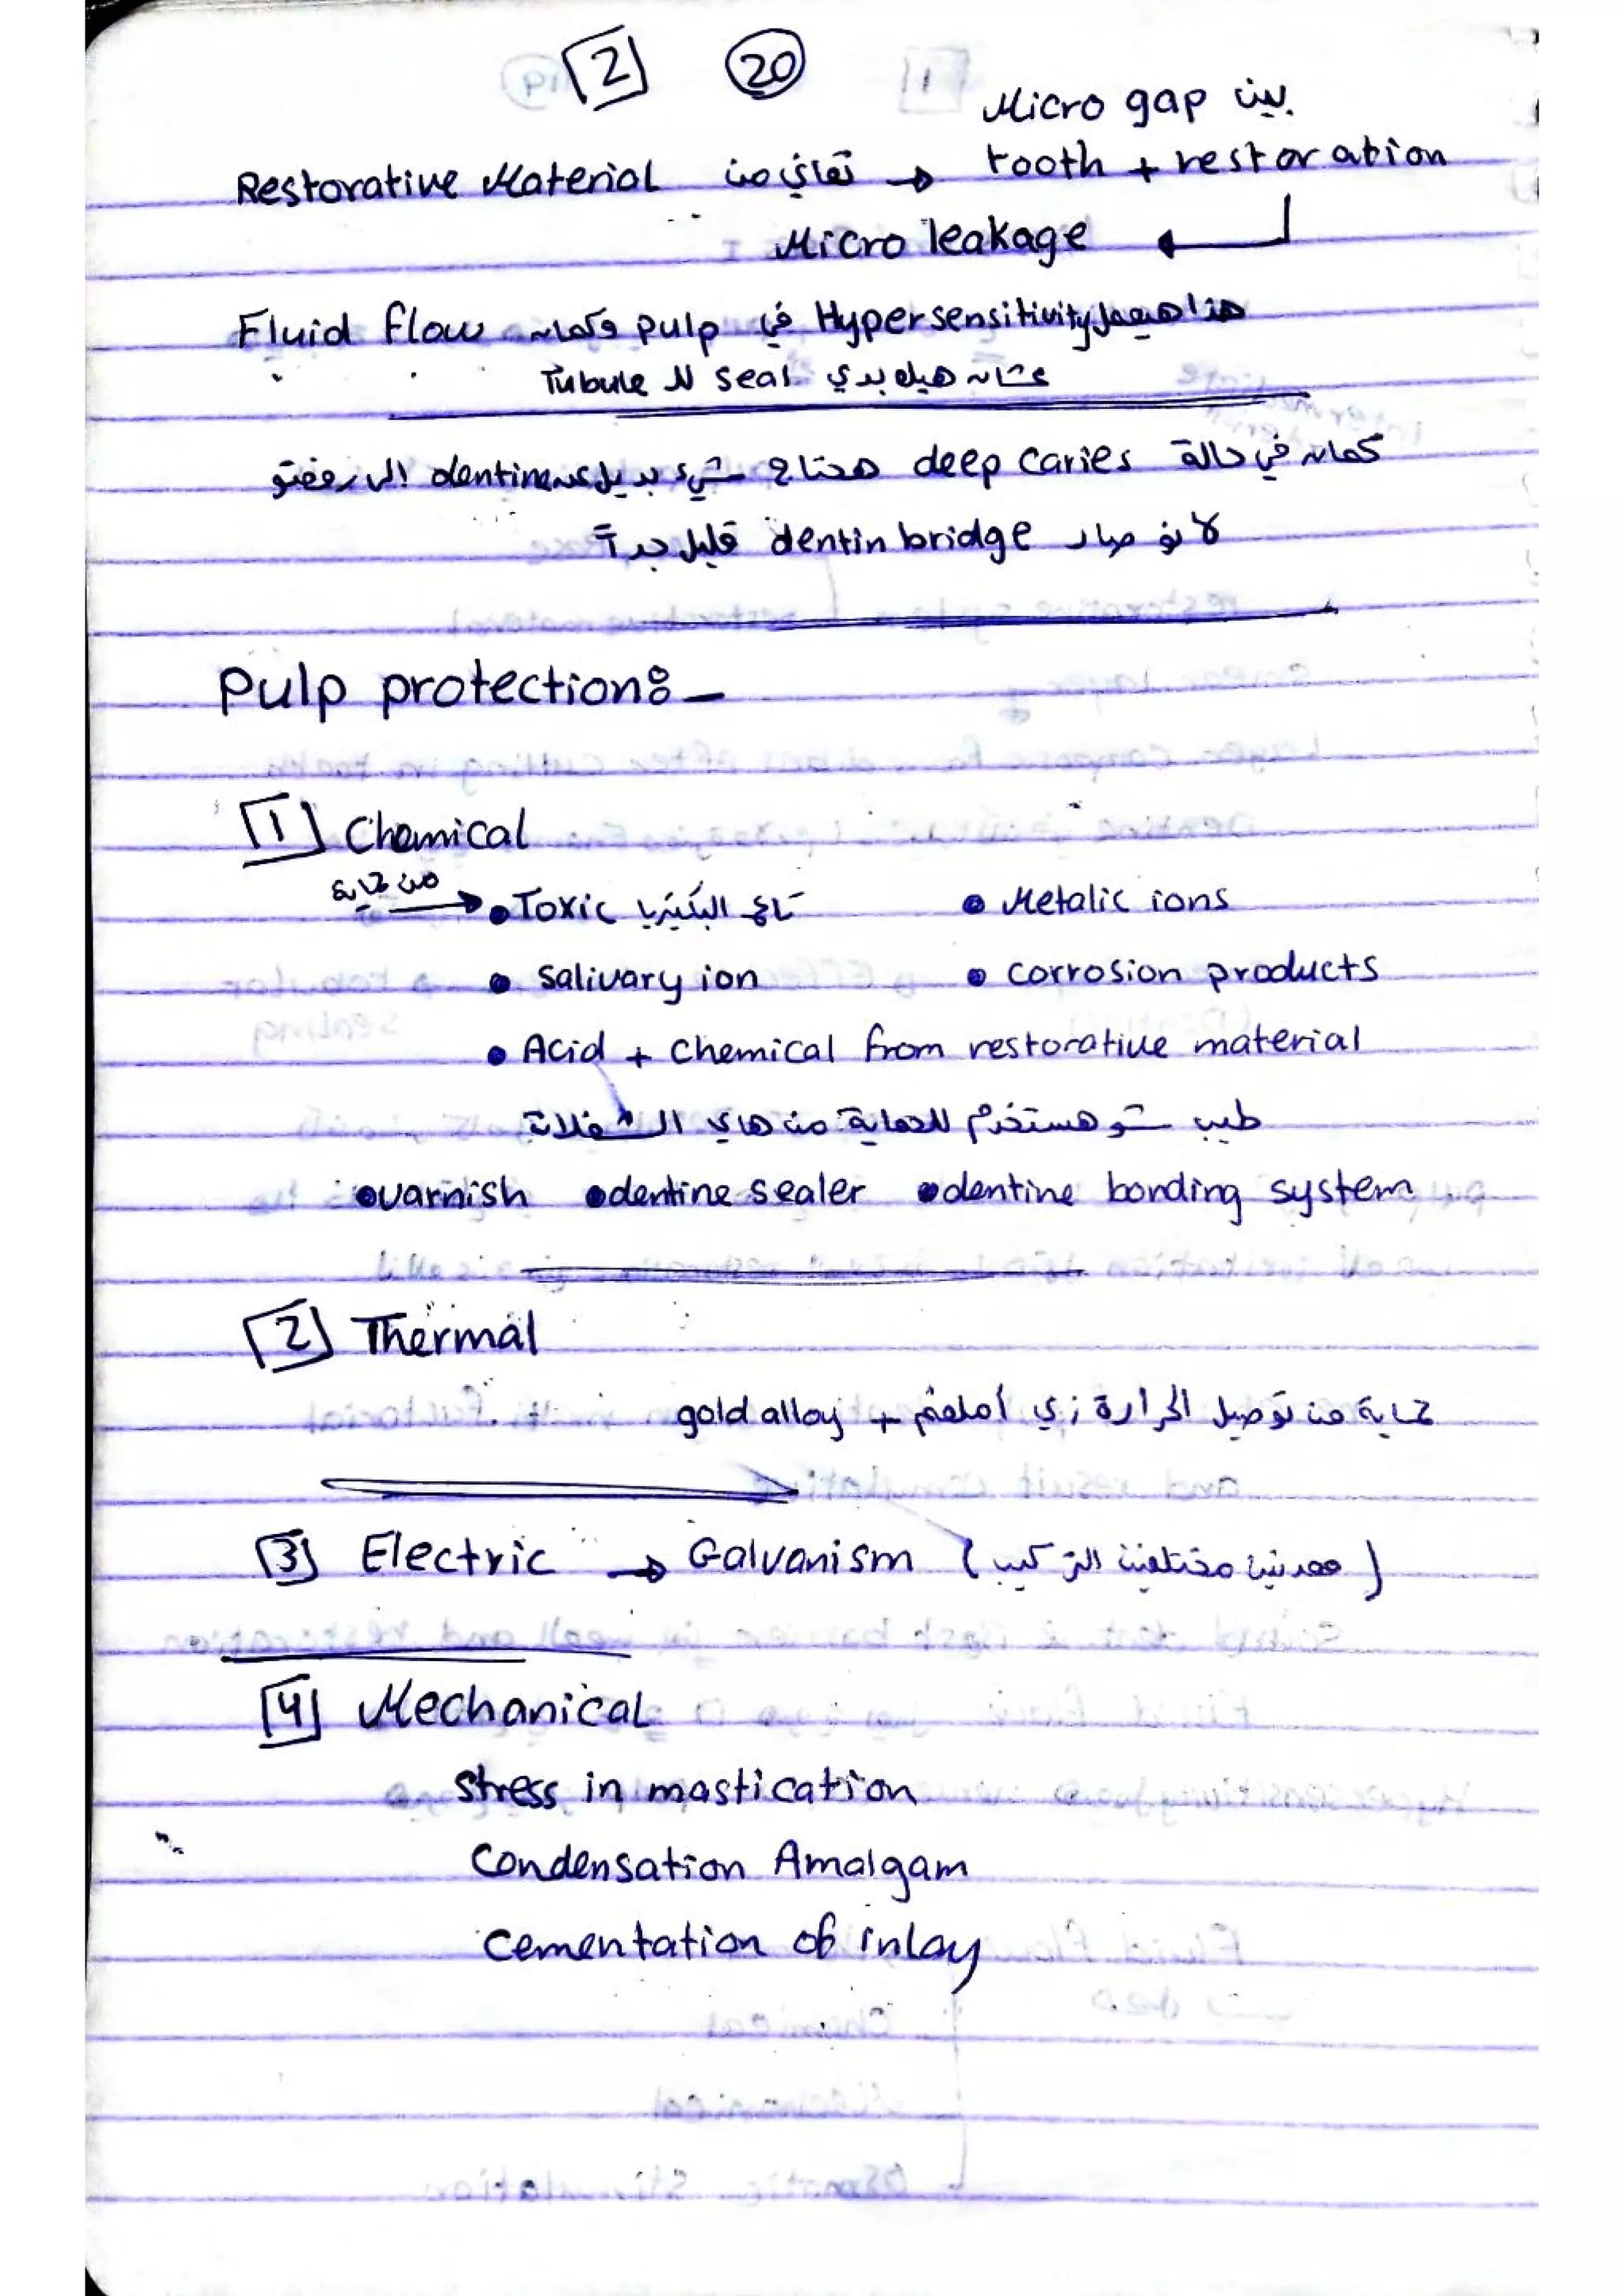 2 20
Micro gap بين
Restorative Material تعاني من → tooth + restoration
Micro leakage
هذا هيعمل Hypersensitivity في pulp وكمان Fluid flow
عشان هيك بدي seal لل Tubule
كمان في حالة deep caries هحتاج شيء بديل عن dentine الي رفعتو
لانو صار dentin bridge قليل جداً
Pulp protection:-
1 Chemical
حماية من → • Toxic تاع البكتيريا • Metalic ions
• Salivary ion • corrosion products
• Acid + chemical from restorative material
طيب شو هستخدم للحماية من هاي الشغلات
• varnish • dentine sealer • dentine bonding system
2 Thermal
حماية من توصيل الحرارة زي أملغم + gold alloy
3 Electric → Galvanism ( معدنين مختلفين التركيب )
4 Mechanical
stress in mastication
Condensation Amalgam
cementation of inlay